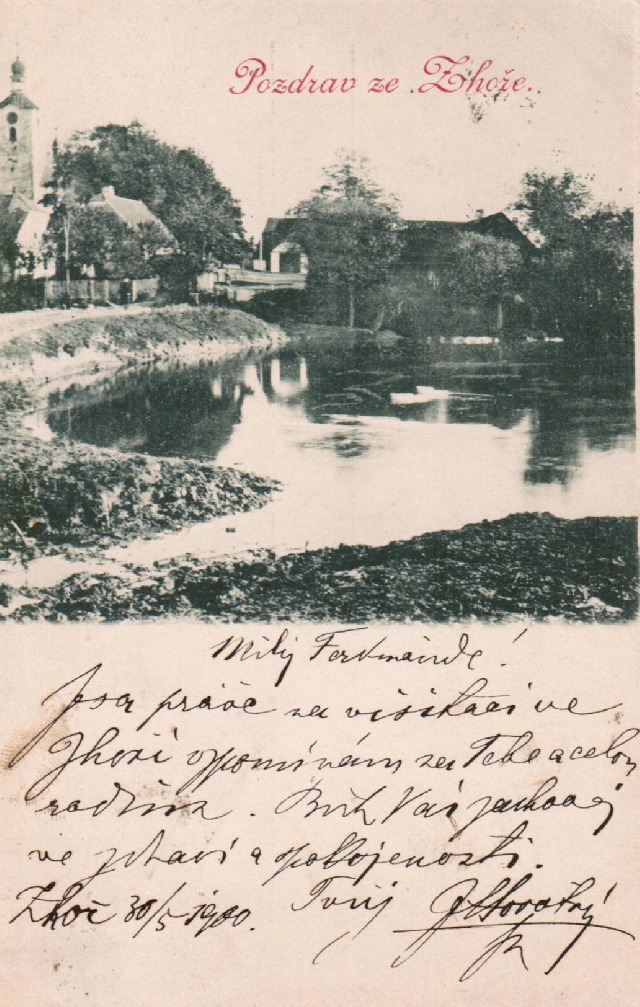 Pozdrav ze Zhoře.
Milý Ferdinande!
Jsa právě na visitaci ve
Zhoři vzpomínám na Tebe a celou
rodinu. Bůh Vás zachovej
ve zdraví a spokojenosti.
Zhoř 30/5 1900. Tvůj